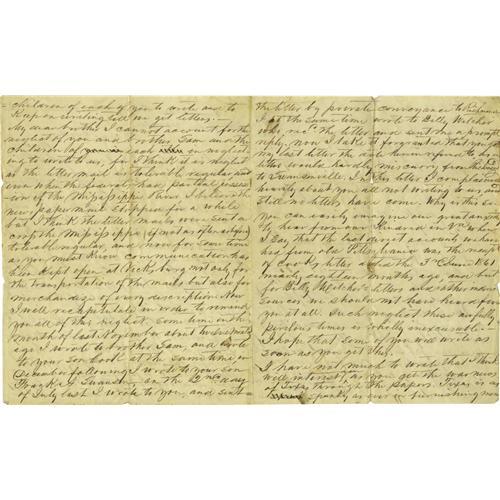 children of each of you to write and to
Keep on writing till we get letters. —
My dear brother I cannot account for the
neglect of you and brother Sam and the
children of each in neglect
ing to write to us, for I think it is neglect
as the letter mail is tolerable regular and
even when the federals had partial posses
sion of the Mississippi River I believe the
news paper mail stopped for a while
but I think the letter mails were sent a
cross the Mississippi if not as often as before
tolerable regular, and now for some time
as you must know communication has
been Kept open at Vicksburg not only for
the transportation of the mails but also for
merchandise of every description. Now
I will recapitulate in order to remind
you all of this neglect, some time in the
month of last November about twelve months
ago I wrote to brother Sam, and wrote
to your son at the same time, in
December following I wrote to your son
Frank, &
of July last I wrote to you, and sent
the letter by private conveyance to
I at the same time wrote to Billy Welcher
who recd. the letter and sent me a prompt
reply, now I take it for granted that you
my last letter the date hereinbefore, as
letter could hardly miscarry from
to In this letter I complained
heavily about you all not writing to us and
still no letters have come. Why is this so
you can easily imagine our great anxiety
to hear from our Kindred in Va. when
I say that the last direct account which we
had from old Virginia was the
by letter dated the 3rd June 1861
nearly eighteen months ago, and but
for Billy Welcher's letters and other
sources, we should not have heard from
you at all. Such neglect these awfully
perilous times is wholly inexcusable —
I hope that some of you will write as
soon as you get this.
I have not much to write that I think
will interest, as you get the war news
of Texas through the papers. Texas is as
spunky as ever in furnishing men